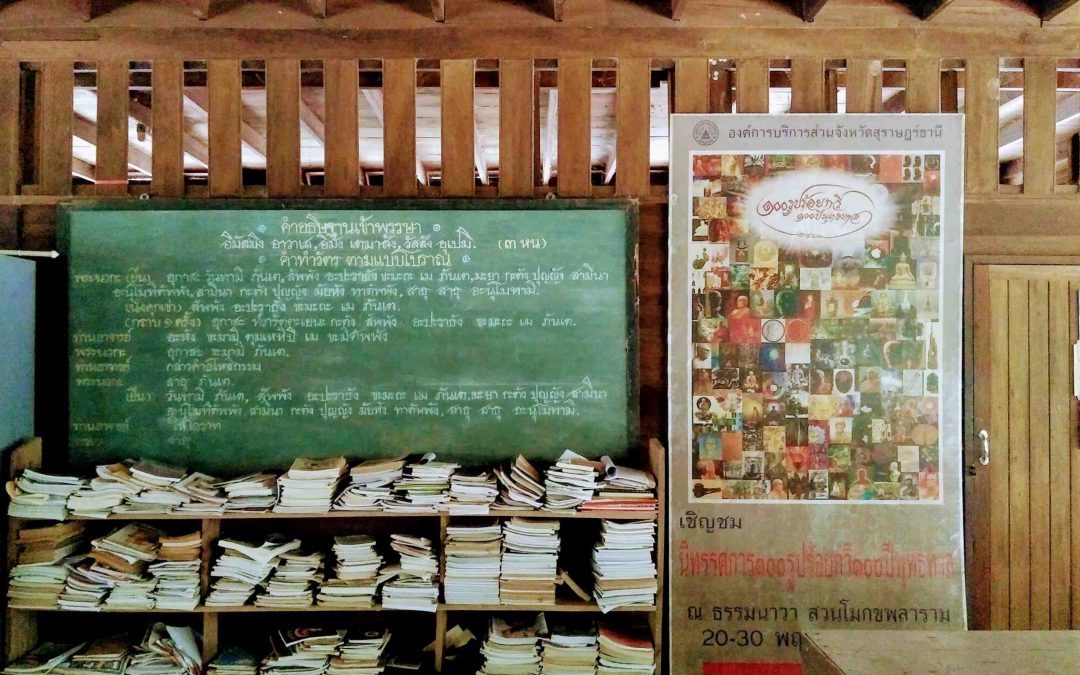 คำอธิษฐานเข้าพรรษา
อิมัสมิง อาวาเส, อิมัง เตมาสัง, วัสสัง อุเปมิ. (๓ หน)
คำทำวัตร ตามแบบโบราณ
พระนวกะ (ยืน) อุกาสะ วันทามิ ภันเต, สัพพัง อะปะราธัง ขะมะถะ เม ภันเต, มะยา กะตัง ปุญญัง สามินา
อะนุโมทิตัพพัง, สามินา กะตัง ปุญญัง มัยหัง ทาตัพพัง, สาธุ สาธุ อะนุโมทามิ.
(นั่งคุกเข่า) สัพพัง อะปะราธัง ขะมะถะ เม ภันเต.
(กราบ ๑ ครั้ง) อุกาสะ ทวารัตตะเยนะ กะตัง สัพพัง อะปะราธัง ขะมะถะ เม ภันเต.
ท่านอาจารย์ อะหัง ขะมามิ ตุมเหหิปิ เม ขะมิตัพพัง
พระนวกะ อุกาสะ ขะมามิ ภันเต.
ท่านอาจารย์ กล่าวคำอโหสิกรรม
พระนวกะ สาธุ ภันเต.
(ยืน) วันทามิ ภันเต, สัพพัง อะปะราธัง ขะมะถะ เม ภันเต, มะยา กะตัง ปุญญัง สามินา
อะนุโมทิตัพพัง, สามินา กะตัง ปุญญัง มัยหัง ทาตัพพัง, สาธุ สาธุ อะนุโมทามิ.
ท่านอาจารย์ ให้โอวาท
องค์การบริหารส่วนจังหวัดสุราษฎร์ธานี
๑๐๐รูปร้อยกวี
๑๐๐ปีพุทธทาส
เชิญชม
นิทรรศการ๑๐๐รูปร้อยกวี๑๐๐ปีพุทธทาส
ณ ธรรมนาวา สวนโมกขพลาราม
20-30 พฤ